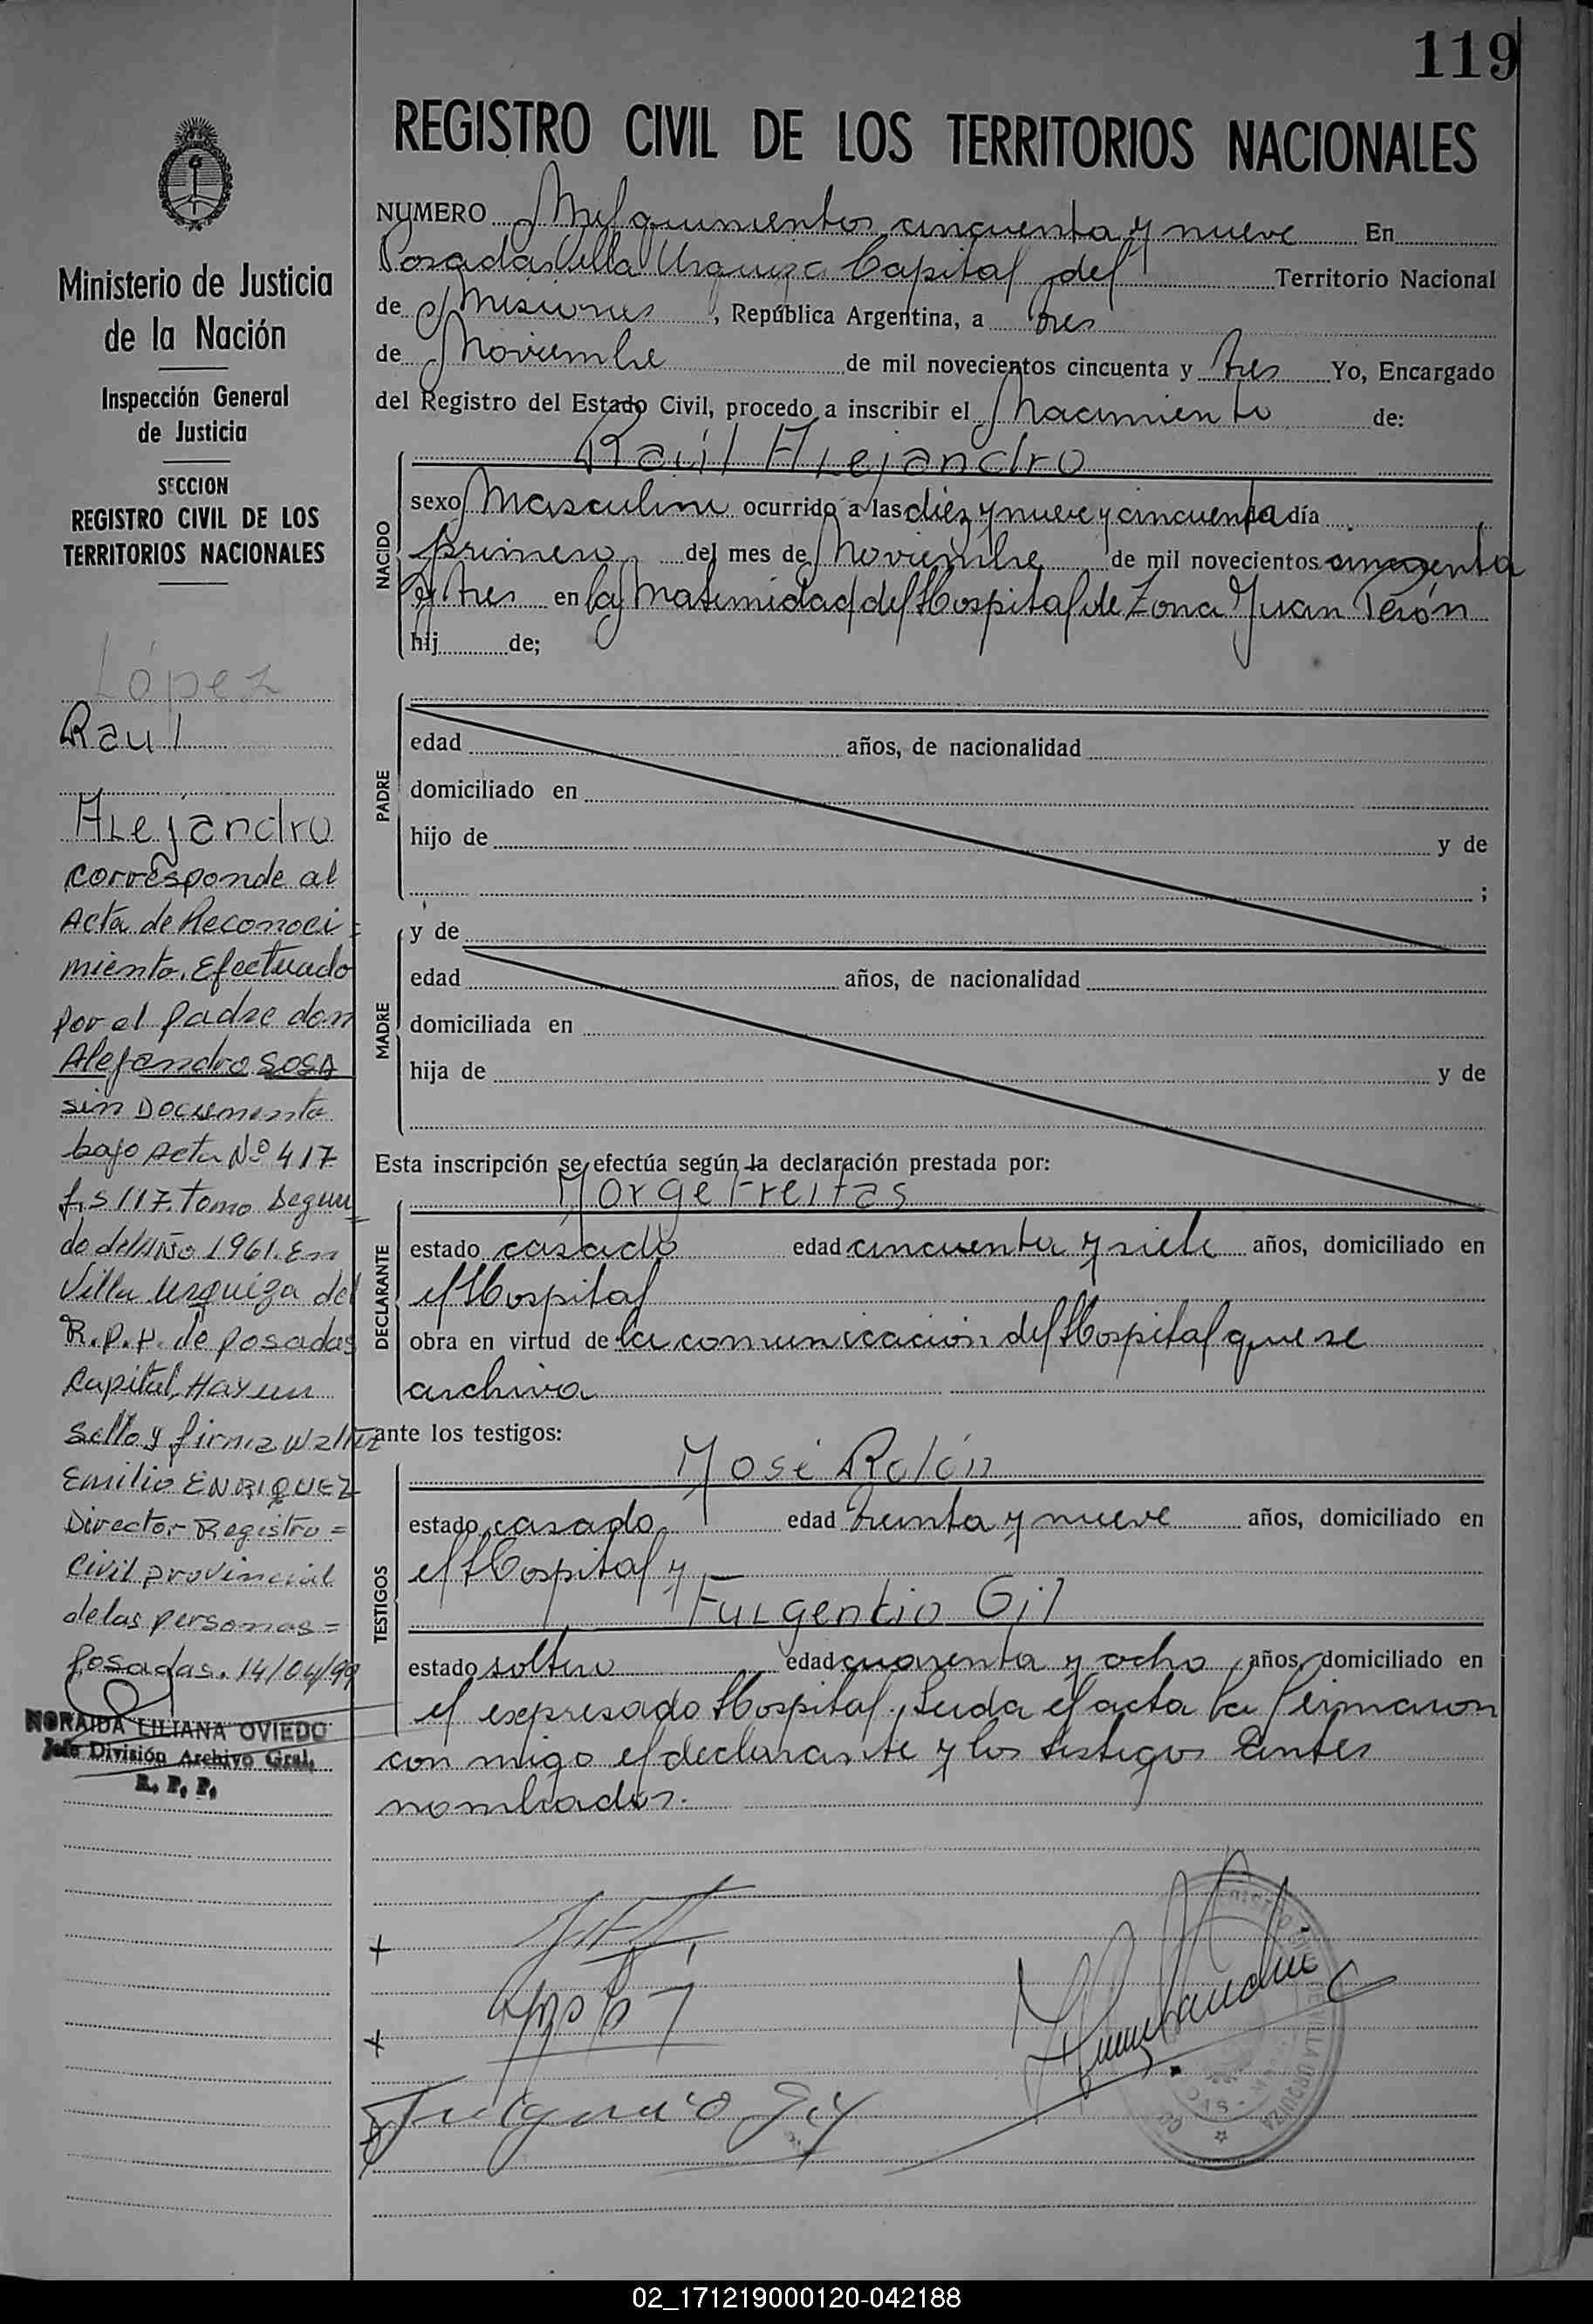 119
REGISTRO CIVIL DE LOS TERRITORIOS NACIONALES
Ministerio de Justicia
de la Nación
Inspección General
de Justicia
SECCION
REGISTRO CIVIL DE LOS
TERRITORIOS NACIONALES
López
Raul
Alejandro
corresponde al
Acta de Reconoci=
miento. Efectuado
por el padre don
Alejandro SOSA
sin Documento
bajo Acta Nº 417
fs 117. Tomo Segun
do del Año 1961. En
Villa Urquiza del
R.P.P. de posadas
Capital, Hay un
sello y firma Walter
Emilio ENRIQUEZ
Director Registro=
Civil provincial
de las personas=
Posadas. 14/04/99
NORAIDA LILIANA OVIEDO
Jefe División Archivo Gral.
R. P. P.
NUMERO Mil quinientos cincuenta y nueve En
Posadas Villa Urquiza Capital del Territorio Nacional
de Misiones, República Argentina, a tres
de Noviembre de mil novecientos cincuenta y tres Yo, Encargado
del Registro del Estado Civil, procedo a inscribir el Nacimiento de:
Raúl Alejandro
NACIDO
sexo Masculino ocurrido a las diez y nueve y cincuenta día
primero del mes de Noviembre de mil novecientos cincuenta
y tres en la Maternidad del Hospital de Zona Juan Perón
hij de;
PADRE
edad años, de nacionalidad
domiciliado en
hijo de y de
;
MADRE
y de
edad años, de nacionalidad
domiciliada en
hija de y de
Esta inscripción se efectúa según la declaración prestada por:
Jorge Freitas
DECLARANTE
estado casado edad cincuenta y siete años, domiciliado en
el Hospital
obra en virtud de la comunicación del Hospital que se
archiva
ante los testigos:
José Rolón
TESTIGOS
estado casado edad treinta y nueve años, domiciliado en
el Hospital y
Fulgentio Gil
estado soltero edad cuarenta y ocho años, domiciliado en
el expresado Hospital. Leida el acta la firmaron
con migo el declarante y los testigos antes
nombrados.
Fulgencio Gil
VILLA URQUIZA
02_171219000120-042188